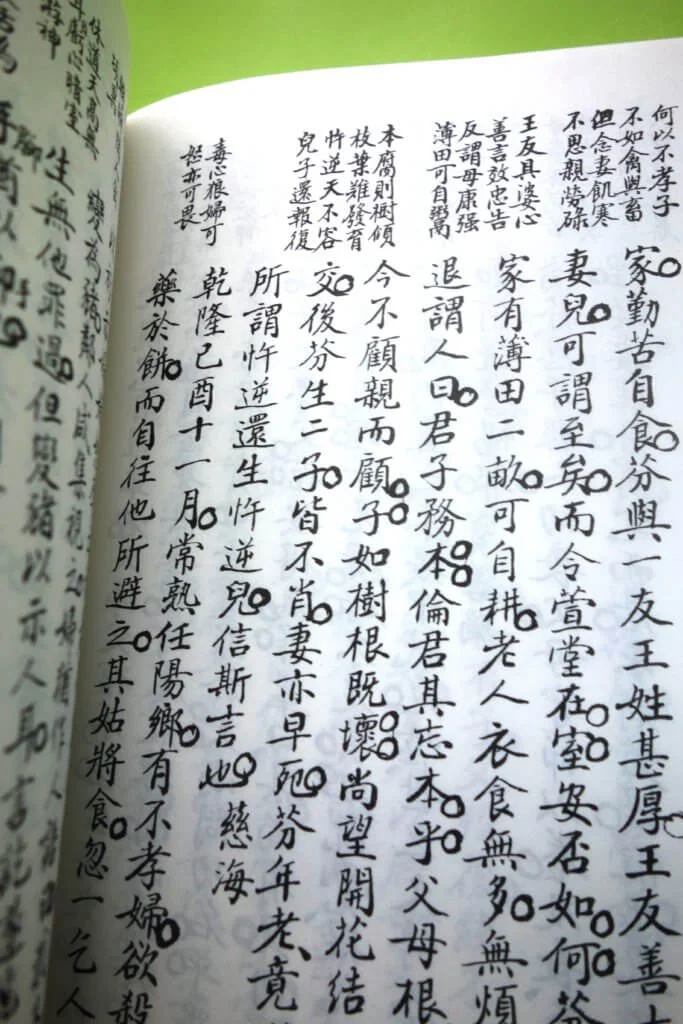 何以不孝子
不如禽與畜
但念妻飢寒
不思親勞碌
王友具婆心
善言效忠告
反謂母康强
薄田可自鬻
本腐則樹傾
枝葉難發育
忤逆天不容
兒子還報復
毒心狠婦可
恕亦可畏
家勤苦自食芬與一友王姓甚厚王友善
妻兒可謂至矣而令萱堂在室安否如何芬
家有薄田二畝可自耕老人衣食無多無煩
退謂人曰君子務本倫君其忘本乎父母根
今不顧親而顧子如樹根既壞尚望開花結
交後芬生二子皆不肖妻亦早死芬年老竟
所謂忤逆還生忤逆兒信斯言也慈海
乾隆己酉十一月常熟任陽鄉有不孝婦欲殺
藥於餅而自往他所避之其姑將食忽一乞人
變為豬鄰人咸集視之
生無他罪過但變豬以示人耳